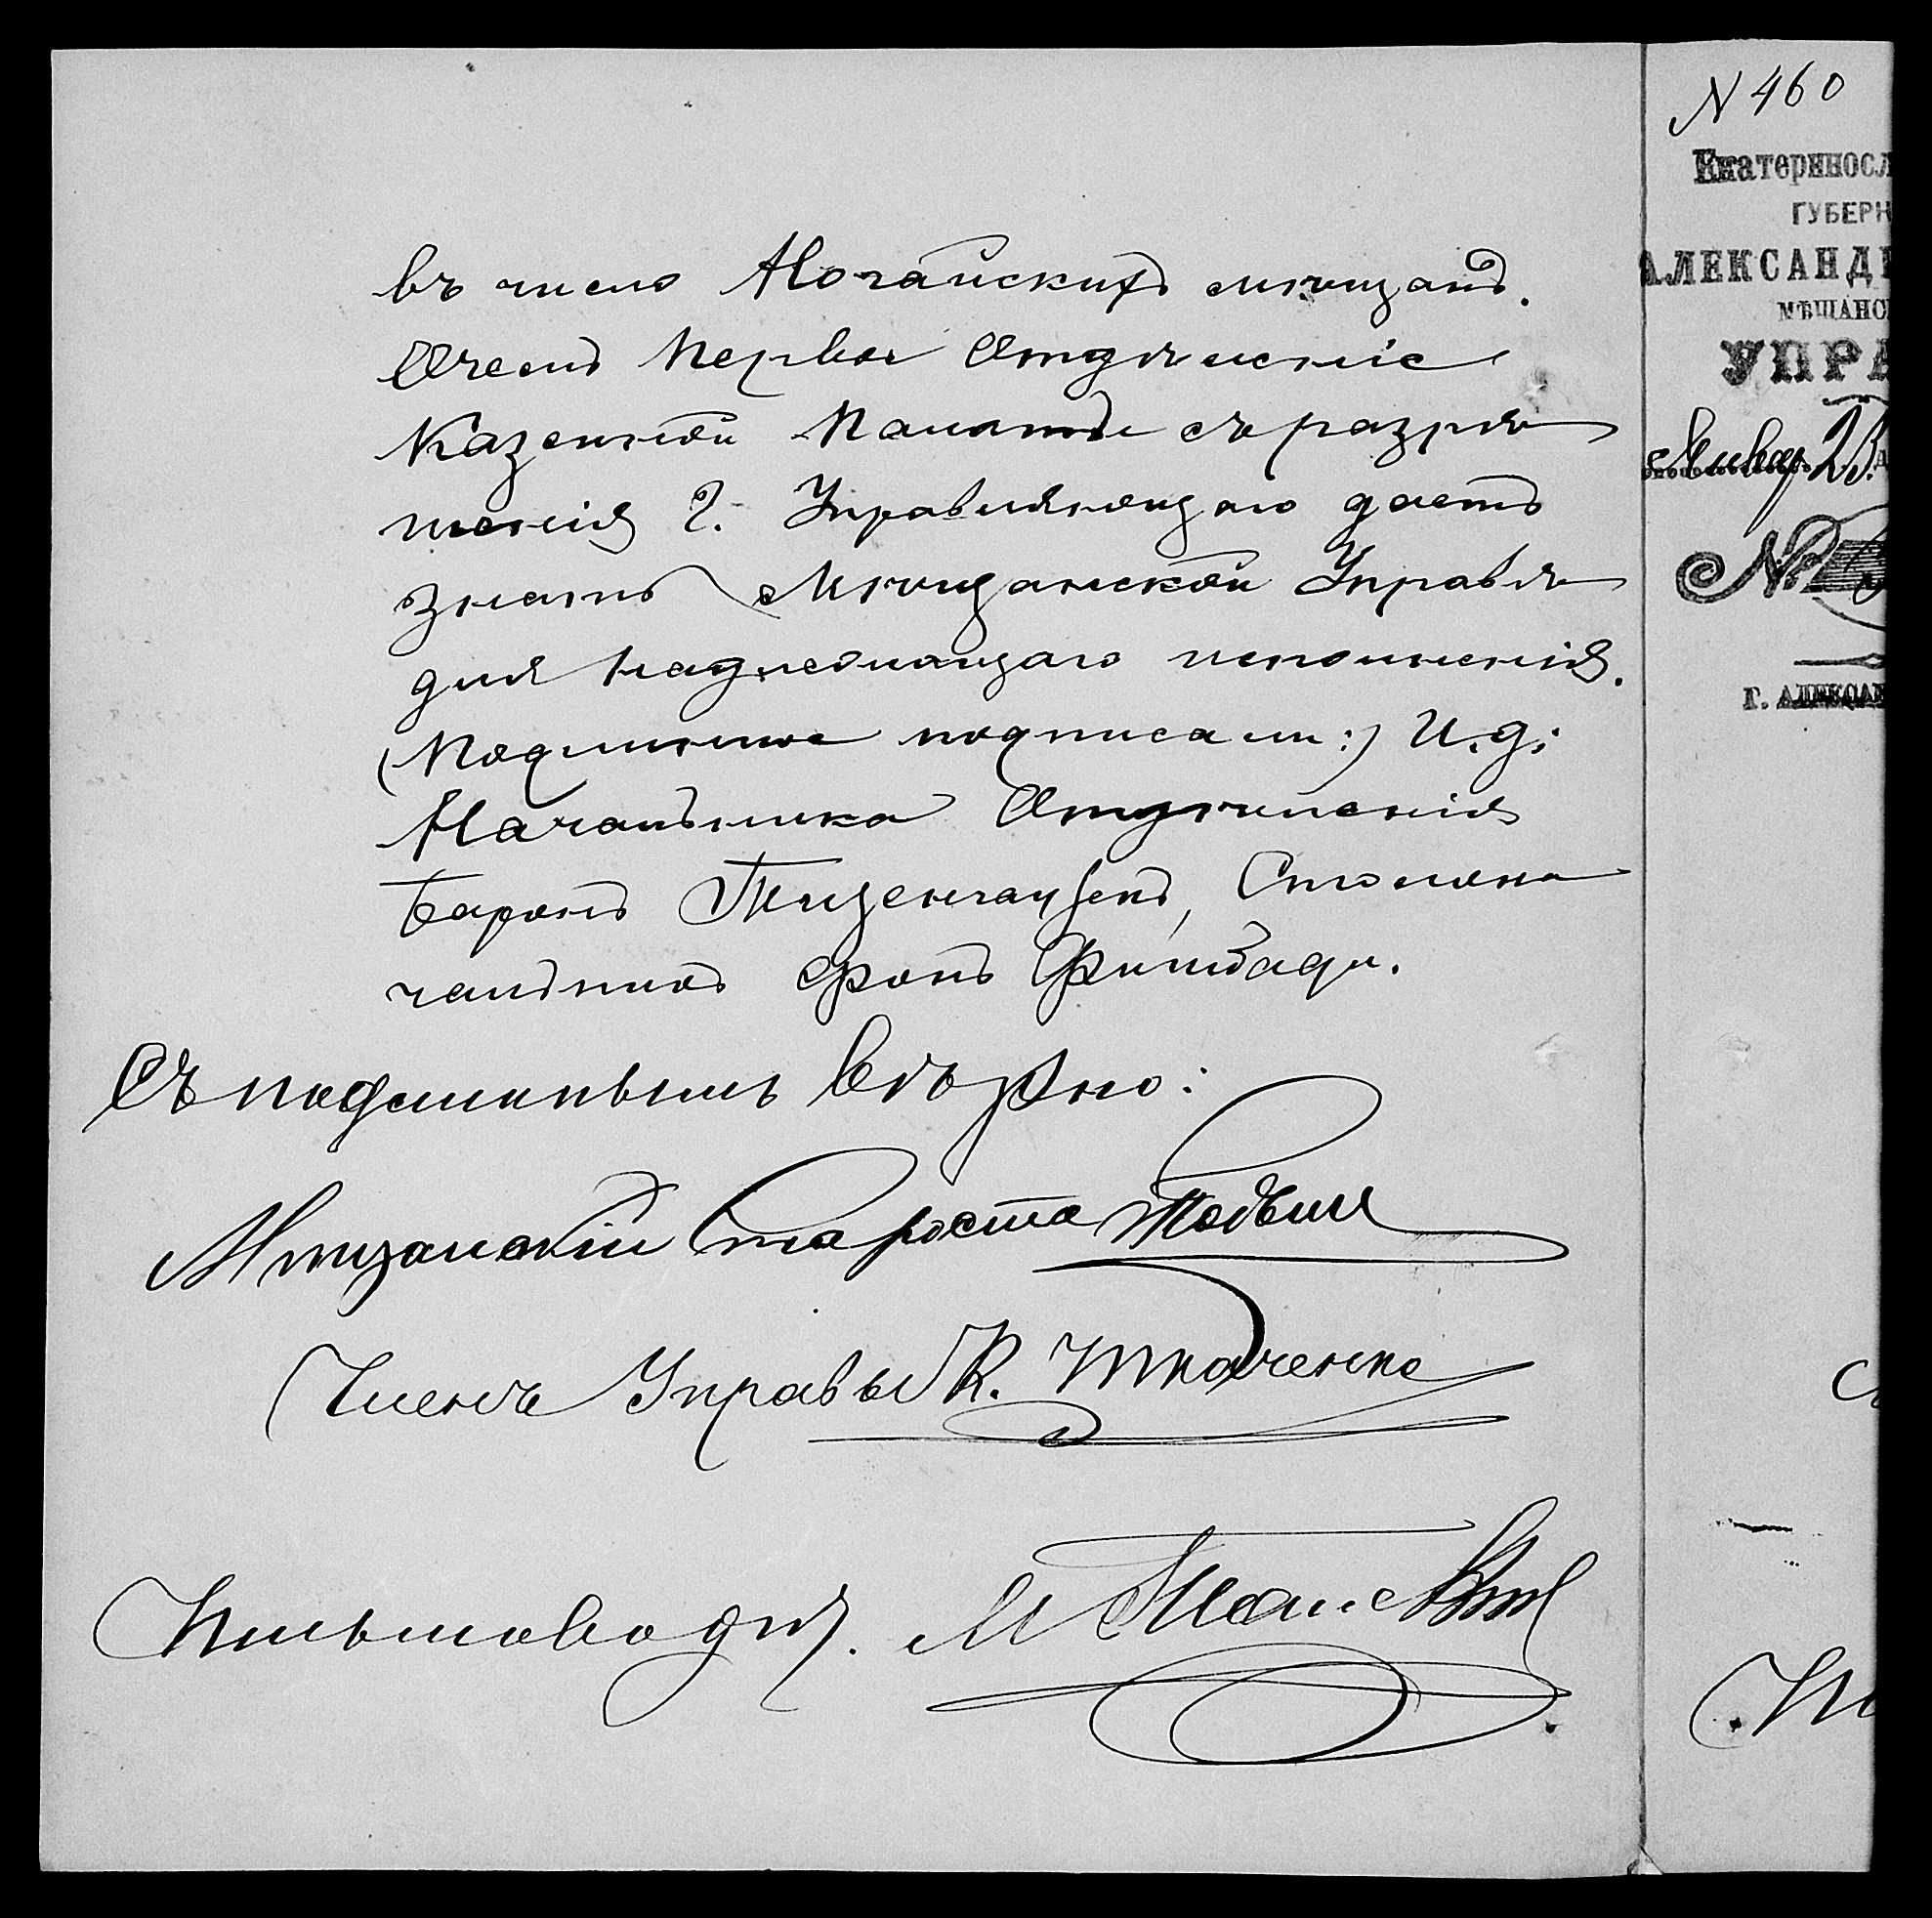 въ число Ногайскихъ мѣщанъ.
О чемъ Первое Отдѣленіе
Казенной Палаты съ разрѣ
шенія Г. Управляющаго даетъ
знать Мѣщанской Управѣ
для надлежащаго исполненія.
(Подлинное подписали:) И. д.
Начальника Отдѣленія
Баронъ Тизенгаузенъ, Столона
чальникъ фонъ
Съ подлиннымъ вѣрно:
Мѣщанскій Староста
Членъ Управы К. Ткаченко
Письмоводит. М
N 460
Екатериносл
ГУБЕРН
АЛЕКСАНД
МѢЩАНС
УПРА
Январ 23
№
Г. АЛЕКСАН